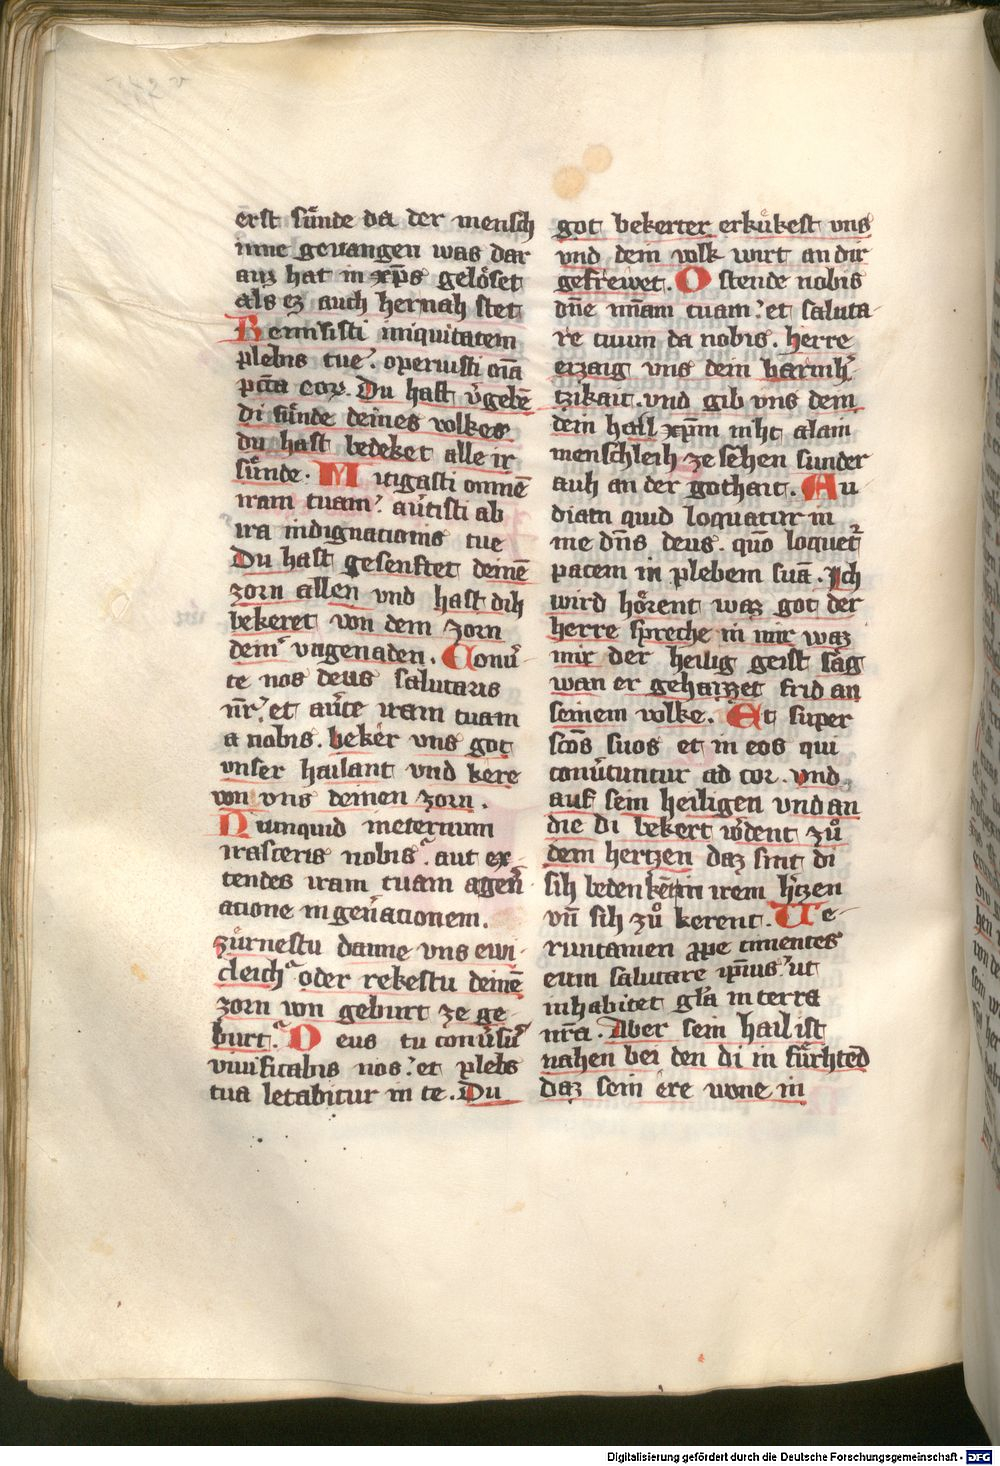 erst sűnde da der mensch
inne geuangen was dar
auz hat in xp̄s gelöset
als ez auch hernah stet
Remisisti iniquitatem
plebis tue. operuisti om̄a
pcc̄a eoꝝ. Du hast v̄gebē
di sűnde deines volkes
du hast bedeket alle ir
sűnde. Mitigasti omnē
iram tuam. au̓tisti ab
ira indignationis tue
Du hast gesenftet deinē
zorn allen vnd hast dih
bekeret von dem zorn
dein̓ vngenaden. Conu̓
te nos deus salutaris
nr̄. et au̓te iram tuam
a nobis. beker vns got
vnser hailant vnd kere
von vns deinen zorn.
Numquid ineternum
irasceris nobis. aut ex-
tendes iram tuam a gen̓
atione in gen̓ationem.
zűrnestu danne vns ewi-
cleich oder rekestu deinē
zorn von geburt ze ge-
burt. Deus tu conu̓sus̓
viuificabis nos. et plebs
tua letabitur in te. Du
got bekerter erkűkest vns
vnd dein volk wirt an dir
gefrewet. Ostende nobis
dn̄e mīam tuam. et saluta-
re tuum da nobis. herre
erzaig vns dein barmh̓-
tzikait. vnd gib vns dein
dein hail xp̄m niht alain
menschleih ze sehen sunder
auh an der gothait. Au
diam quid loquatur in
me dn̄s deus. qm̄ loquet̓
pacem in plebem suā. Ich
wird hörent waz got der
herre spreche in mir waz
mir der heilig geist sag
wan er gehaizzet frid an
seinem volke. Et super
sc̄os suos et in eos qui
conu̓tuntur ad cor. vnd
auf sein heiligen vnd an
die di bekert w̓dent zů
dem hertzen daz sint di
sih bedenkēt in irem h̓tzen
vn̄ sih zů kerent. Ue-
runtamen ꝓpe timentes
eum salutare ip̄ius. ut
inhabitet gl̄a in terra
nr̄a. Aber sein hail ist
nahen bei den di in fűrhtēd
daz sein ere wone in
Digitalisierung gefördert durch die Deutsche Forschungsgemeinschaft - DFG